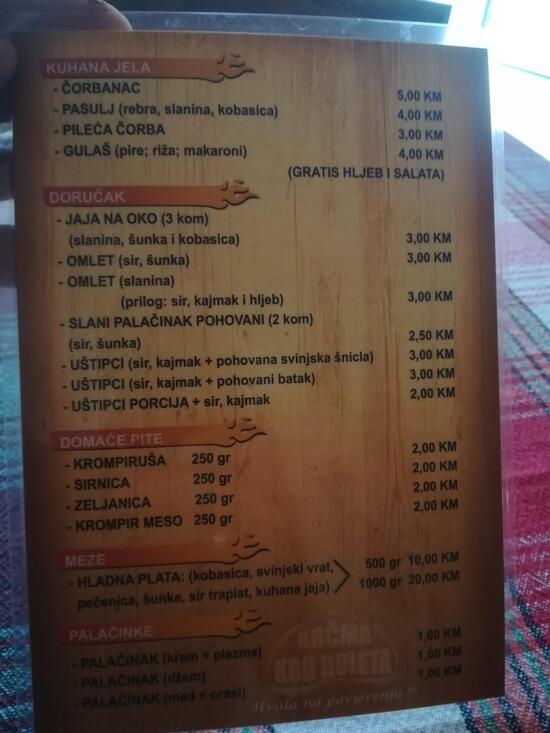 KUHANA JELA
- ČORBANAC 5,00 KM
- PASULJ (rebra, slanina, kobasica) 4,00 KM
- PILEĆA ČORBA 3,00 KM
- GULAŠ (pire; riža; makaroni) 4,00 KM
(GRATIS HLJEB I SALATA)
DORUČAK
- JAJA NA OKO (3 kom)
(slanina, šunka i kobasica) 3,00 KM
- OMLET (sir, šunka) 3,00 KM
- OMLET (slanina)
(prilog: sir, kajmak i hljeb) 3,00 KM
- SLANI PALAČINAK POHOVANI (2 kom)
(sir, šunka) 2,50 KM
- UŠTIPCI (sir, kajmak + pohovana svinjska šnicla) 3,00 KM
- UŠTIPCI (sir, kajmak + pohovani batak) 3,00 KM
- UŠTIPCI PORCIJA + sir, kajmak 2,00 KM
DOMAĆE PITE
- KROMPIRUŠA 250 gr 2,00 KM
- SIRNICA 250 gr 2,00 KM
- ZELJANICA 250 gr 2,00 KM
- KROMPIR MESO 250 gr 2,00 KM
MEZE
- HLADNA PLATA: (kobasica, svinjski vrat, 500 gr 10,00 KM
pečenica, šunka, sir trapist, kuhana jaja) 1000 gr 20,00 KM
PALAČINKE
- PALAČINAK (krem + plazma) 1,00 KM
- PALAČINAK (džem) 1,00 KM
- PALAČINAK (med + orasi) 1,00 KM
KRČMA
KOD BOLETA
Hvala na povjerenju !!!